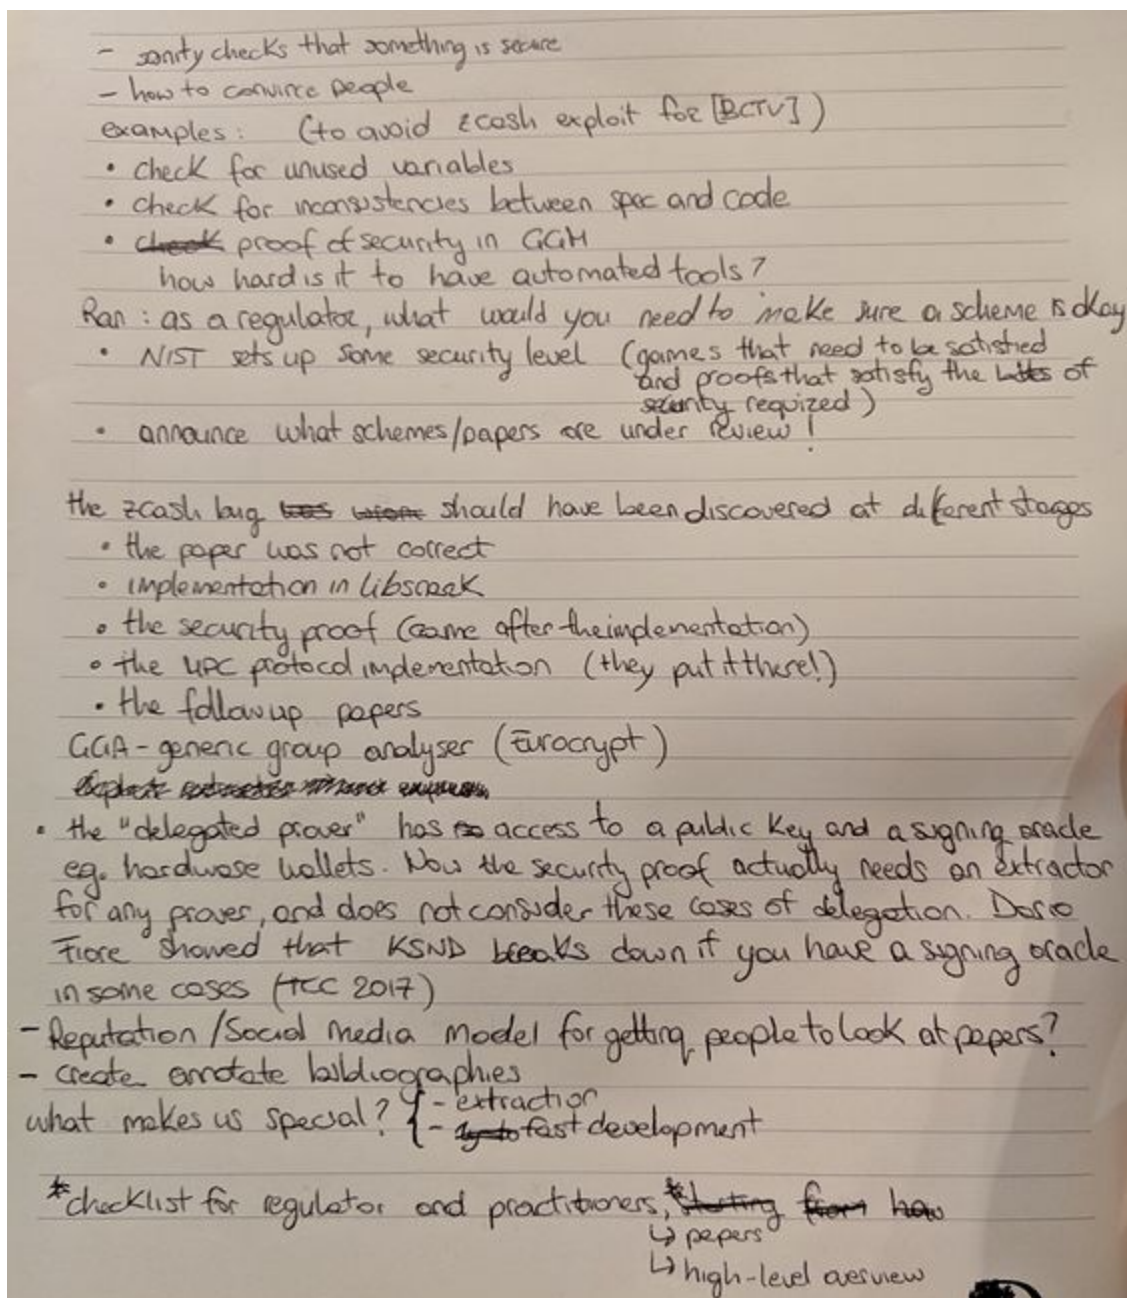 - sanity checks that something is secure
- how to convince people
examples: (to avoid zcash exploit for [BCTV])
• check for unused variables
• check for inconsistencies between spec and code
• check proof of security in GGM
how hard is it to have automated tools?
Ran: as a regulator, what would you need to make sure a scheme is okay
• NIST sets up some security level (games that need to be satisfied
and proofs that satisfy the of
security required)
• announce what schemes/papers are under review!
the zcash bug was should have been discovered at different stages
• the paper was not correct
• implementation in libsnark
• the security proof (came after the implementation)
• the MPC protocol implementation (they put it there!)
• the followup papers
GGA - generic group analyser (Eurocrypt)
• the "delegated prover" has access to a public key and a signing oracle
eg. hardware wallets. Now the security proof actually needs an extractor
for any prover, and does not consider these cases of delegation. Dario
Fiore showed that KSND breaks down if you have a signing oracle
in some cases (TCC 2017)
- Reputation/Social Media Model for getting people to look at papers?
- create annotate bibliographies
what makes us special? { - extraction
- fast development
*checklist for regulator and practitioners,* starting from how
↳ papers
↳ high-level overview